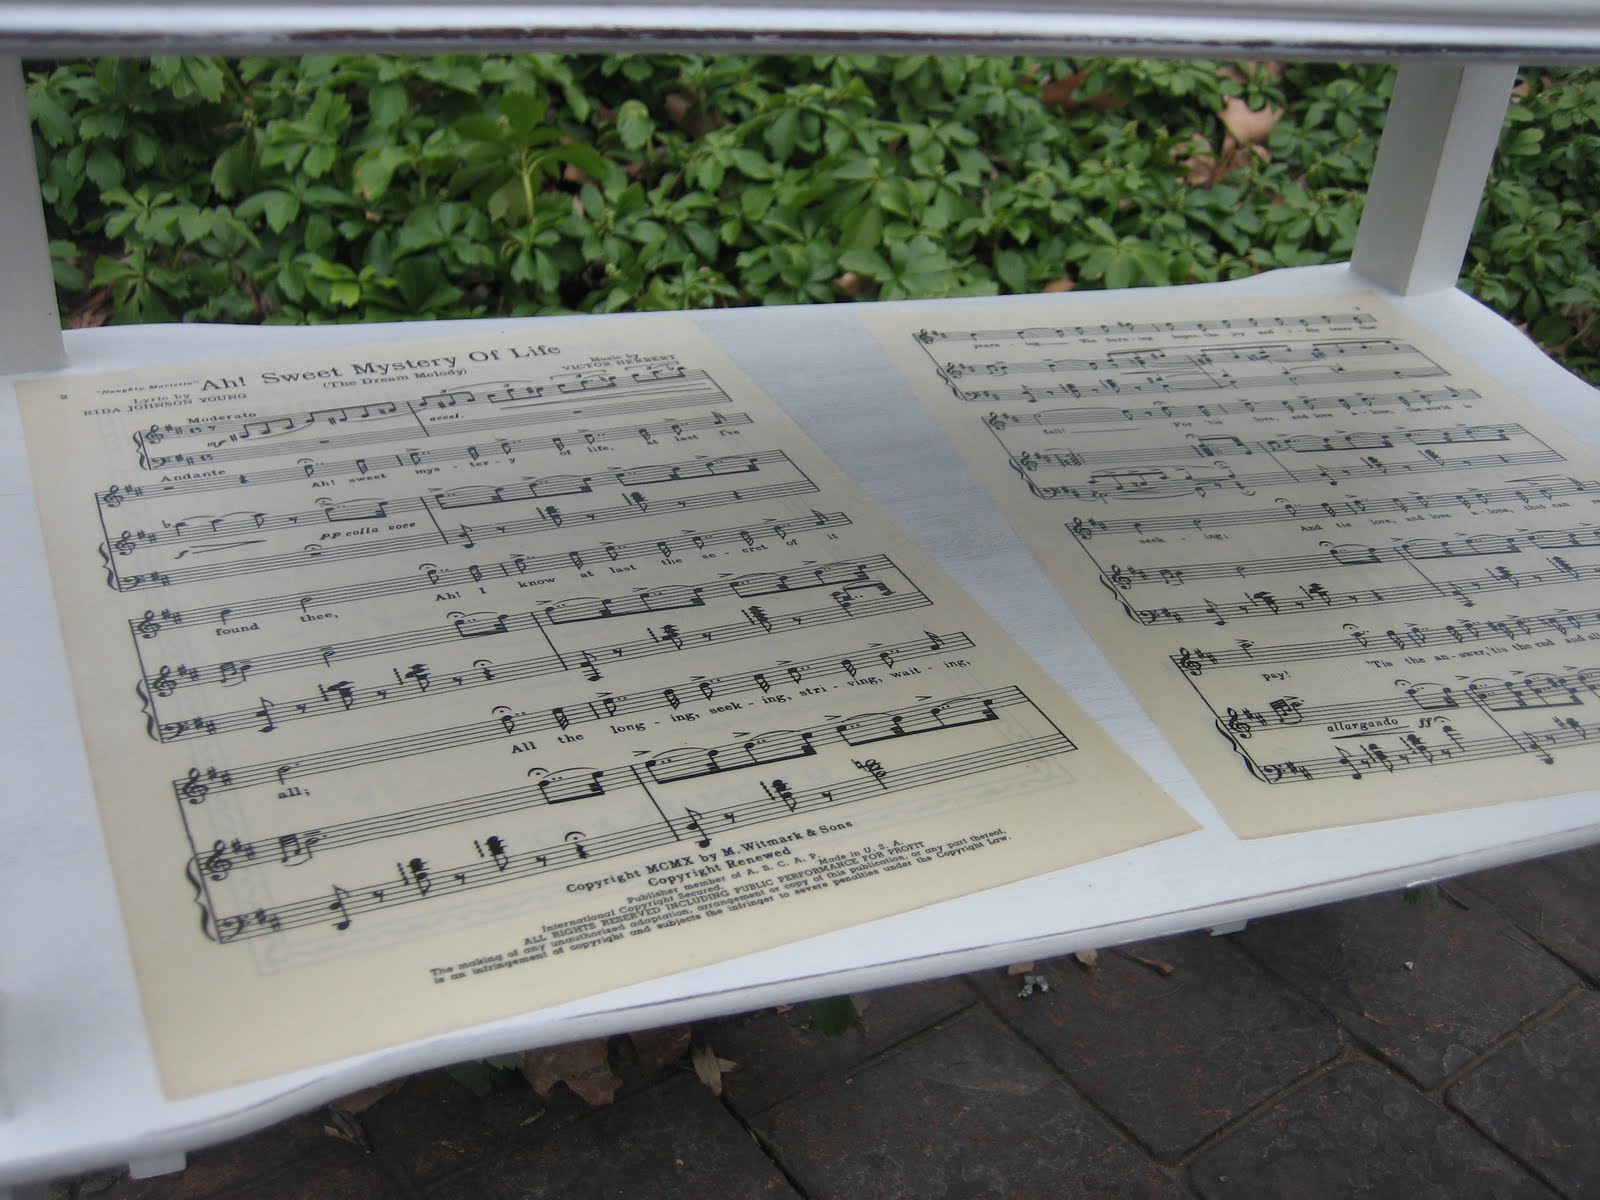 2
"Naughty Marietta"
Ah! Sweet Mystery Of Life
(The Dream Melody)
Lyric by
RIDA JOHNSON YOUNG
Music by
VICTOR HERBERT
Moderato
mf
accel.
Andante
Ah! sweet mys - ter - y of life, at last I've
f
pp colla voce
found thee, Ah! I know at last the se - cret of it
all; All the long - ing, seek - ing, striv - ing, wait - ing,
Copyright MCMX by M. Witmark & Sons
Copyright Renewed
Publisher member of A. S. C. A. P. Made in U. S. A.
International Copyright Secured.
ALL RIGHTS RESERVED INCLUDING PUBLIC PERFORMANCE FOR PROFIT
The making of any unauthorized adaptation, arrangement or copy of this publication, or any part thereof,
is an infringement of copyright and subjects the infringer to severe penalties under the Copyright Law.
yearn - ing, The burn - ing hopes, the joy and i - dle tears that
fall! For 'tis love, and love a - lone, the world is
seek - ing; And 'tis love, and love a - lone, that can
pay! 'Tis the an - swer, 'tis the end and all
allargando ff